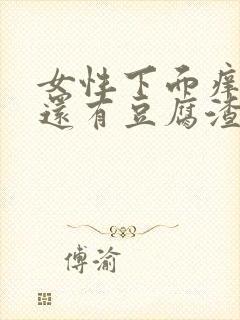 女性下面痒
還有豆腐渣
傅渝